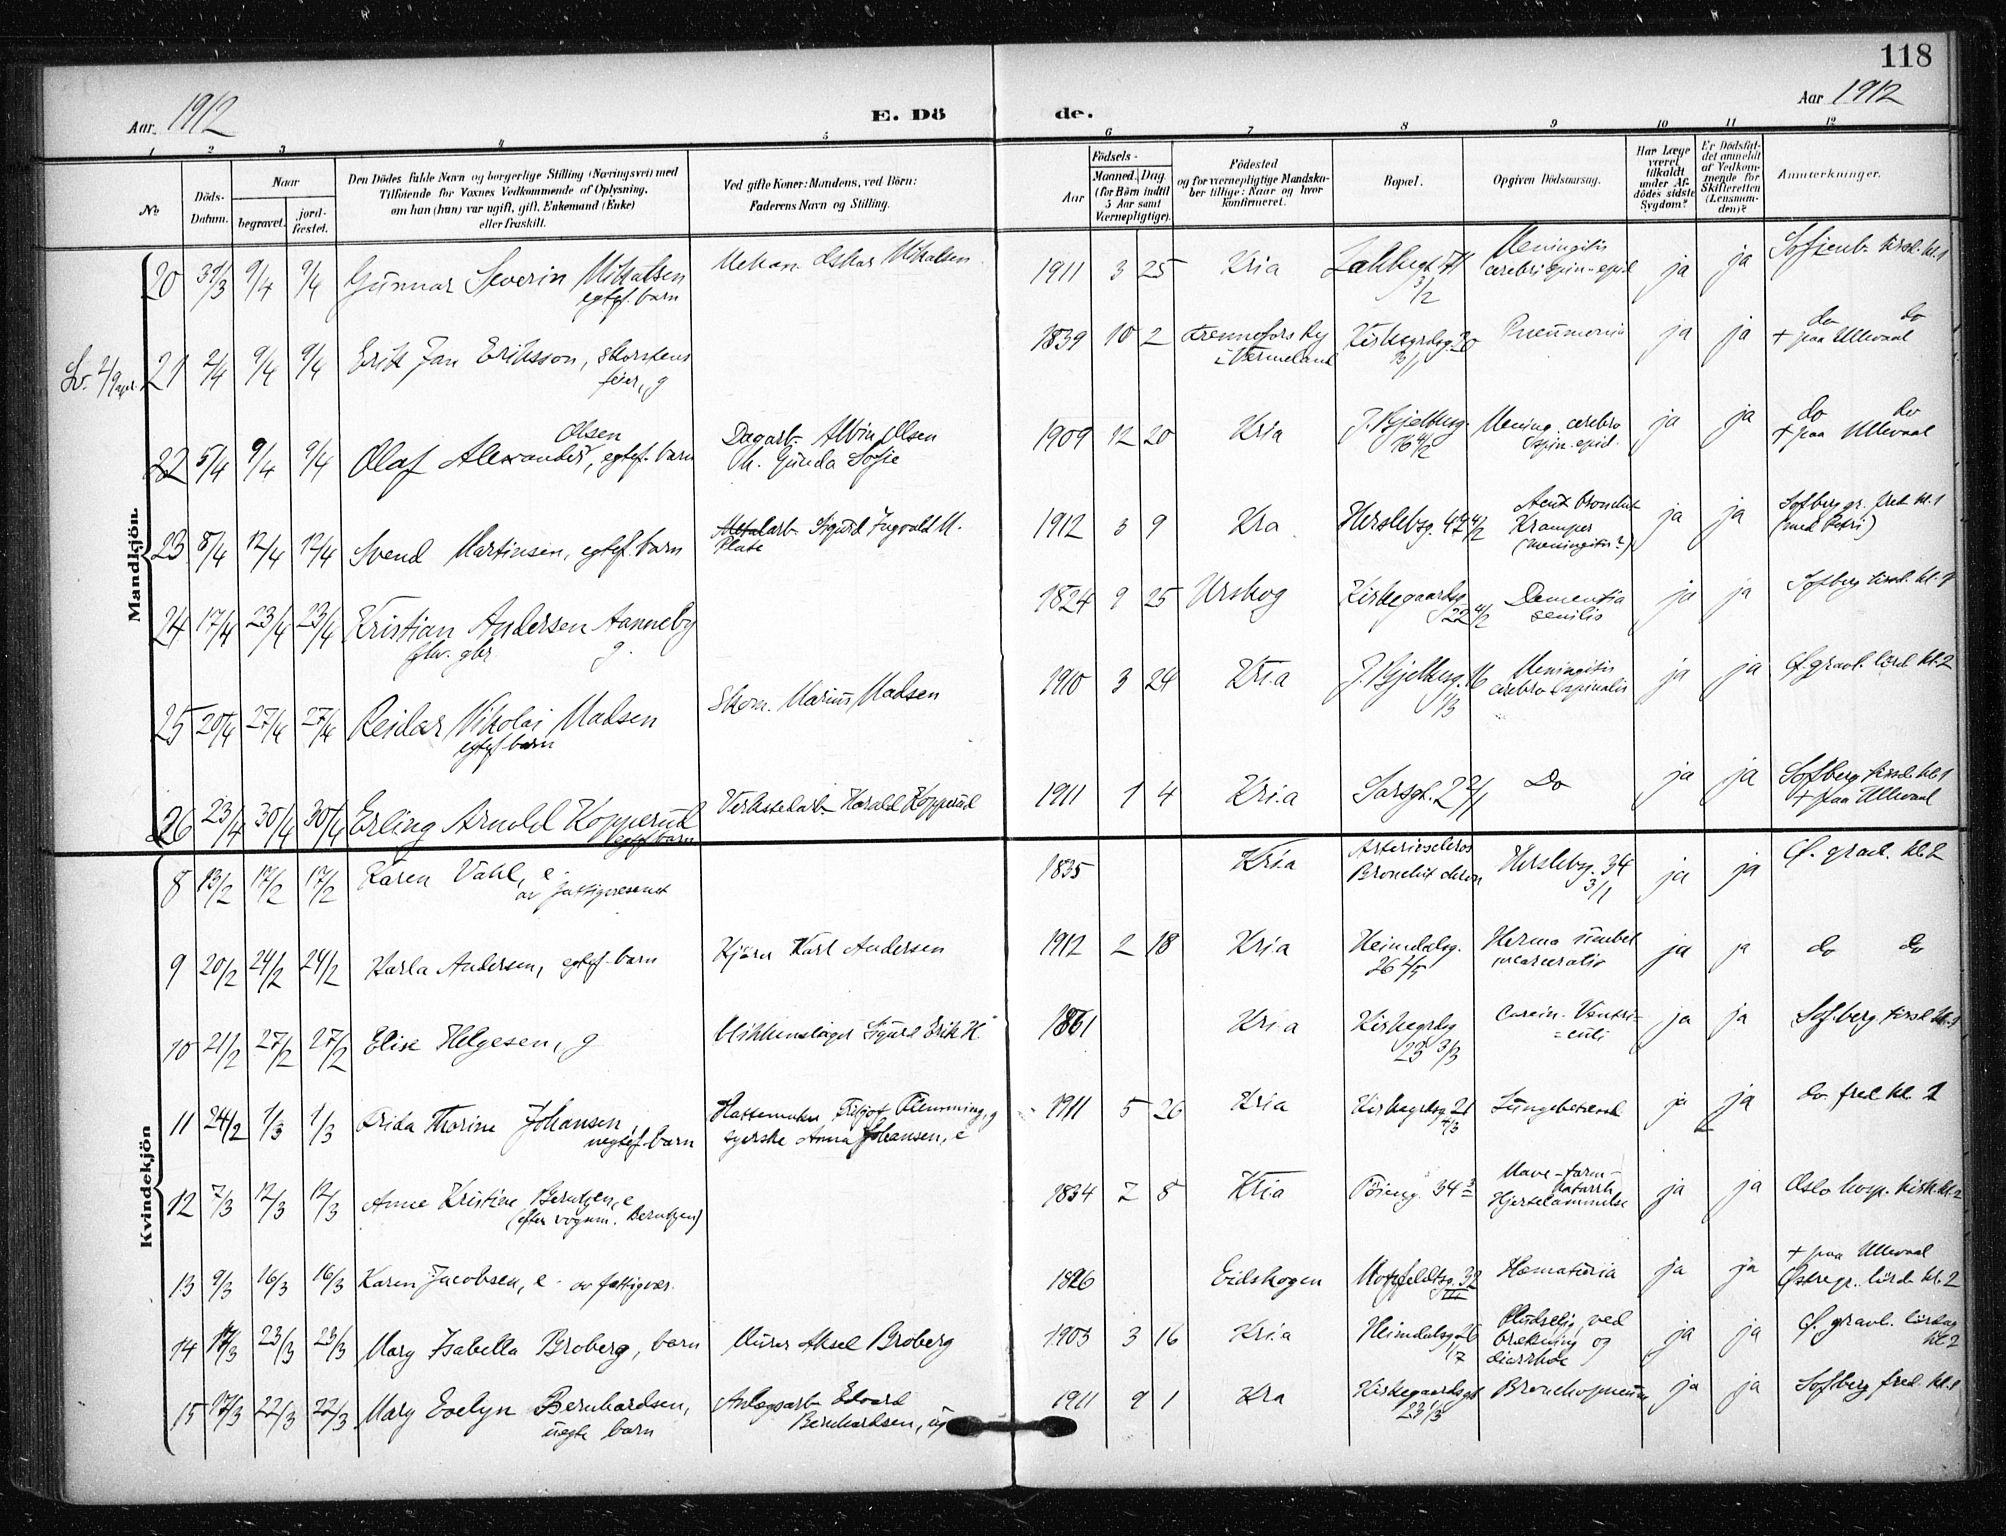 118
Aar 1912
E. Dö
de.
Aar 1912
1 2 3 4 5 6 7 8 9 10 11 12
No
Döds-
Datum.
Naar
begravet.
jord-
fæstet.
Den Dödes fulde Navn og borgerlige Stilling (Næringsvei) med
Tilföiende for Voxnes Vedkommende af Oplysning,
om han (hun) var ugift, gift, Enkemand (Enke)
eller fraskilt.
Ved gifte Koner: Mandens, ved Börn:
Faderens Navn og Stilling.
Födsels-
Aar
Maaned. Dag.
(for Börn indtil
5 Aar samt
Værnepligtige).
Födested
og for værnepligtige Mandska-
ber tillige: Naar og hvor
konfirmeret.
Bopæl.
Opgiven Dödsaarsag.
Har Læge
været
tilkaldt
under Af-
dödes sidste
Sygdom?
Er Dödsfal-
det anmeldt
af Vedkom-
mende for
Skifteretten
(Lensman-
den)?
Anmærkninger.
Mandkjön.
20 31/3 9/4 9/4 Gunnar Severin Mikalsen
egtef. barn
Mekan. Oskar Mikalsen
1911 3 25 Kria
3/2
Meningitis
cerebrospin-epid
ja ja Sofienb. tirsd. kl. 1
21 2/4 9/4 9/4 Erik Jan Eriksson, skorstens
feier, g
1839 10 2
i Vermeland
Kirkegrdsg. 20
Pneumonia ja ja do do
+ paa Ullevaal
22 5/4 9/4 9/4 Olaf Alexander Olsen, egtef. barn
Dagarb. Albin Olsen
h. Gunda Sofie
1909 12 20 Kria
Mening. cerebro
spin. epid.
ja ja do do
+ paa Ullevaal
23 8/4 12/4 12/4 Svend Martinsen, egtef. barn
Metalarb. Sigurd Ingvald M.
Plate
1912 3 9 Kra. Herslebsg. 47 4/2
Acut Bronchit
Kramper
(meningitis?)
ja ja Sofberg gr. fred kl. 1
24 17/4 23/4 23/4 Kristian Andersen Aanneby
g.
1824 9 25 Urskog Kirkegaardsg.
22 4/2
Dementia
senilis
ja ja Sofberg tirsd. kl. 1
25 20/4 27/4 27/4 Reidar Nikolai Madsen
egtef. barn
Skom. Marius Madsen
1910 3 24 Kria
1/3
Meningitis
cerebrospinalis
ja ja Ø. gravl. lörd kl. 2
26 23/4 30/4 30/4 Erling Arnold Kopperud
egtef. barn
Verkstedarb. Harald Kopperud
1911 1 4 Kria Sarsgt. 2 2/1 Do ja ja Sofberg tirsd. kl. 1
+ paa Ullevaal
Kvindekjön
8 13/2 17/2 17/2 Karen Vahl, e.
av fattigvesenet
1835 Kria Arterioscleros
Bronchit chron
Herslebsg. 34
3/1
ja ja Ø. gravl. kl. 2
9 20/2 24/2 24/2 Karla Andersen, egtef. barn
Kjører Karl Andersen
1912 2 18 Kria Heimdalsg.
Hernia umbil
incarceratio
ja ja do do
10 21/2 27/2 27/2 Elise Helgesen, g
Blikkenslager Sigurd Erik H.
1861 Kria Kirkegrdsg
23 3/3
Carcin. Ventri-
=culi
ja ja Sofberg tirsd. kl. 1
11 24/2 1/3 1/3 Frida Thorine Johansen,
uegtef. barn
Hattemaker Fritjof Flemming, g
syerske Anna Johansen, e
1911 5 26 Kria Kirkegrdsg 21
4/3
Lungebetænd ja ja do. fred. kl. 1
12 7/3 12/3 12/3 Anne Kristine Berntzen, e
(efter vognm. Berntzen)
1834 7 8 Kria Töieng. 34
Mave-tarm-
katarrh
Hjertelammelse
ja ja Oslo hosp. tirsd. kl. 2
13 9/3 16/3 16/3 Karen Jacobsen, e. av fattigvæs.
1826 Eidskogen Motzfeldtsg. 32
III
Hæmaturia ja ja + paa Ullevaal
Østre gr. lörd. kl. 2
14 17/3 23/3 23/3 Mary Isabella Broberg, barn
Murer Aksel Broberg
1903 3 16 Kria Heimdalsg 26
1/7
Pludselig, ved
brækning og
diarrhoe
ja ja Ø. gravl. lördag
kl. 2
15 17/3 22/3 22/3 Mary Evelyn Bernhardsen,
uegte barn
Anlægsarb. Edvard
Bernhardsen, ug
1911 9 1 Kra Kirkegaardsgt
23 1/3
Bronchopneum ja ja Sofberg fred. kl. 1